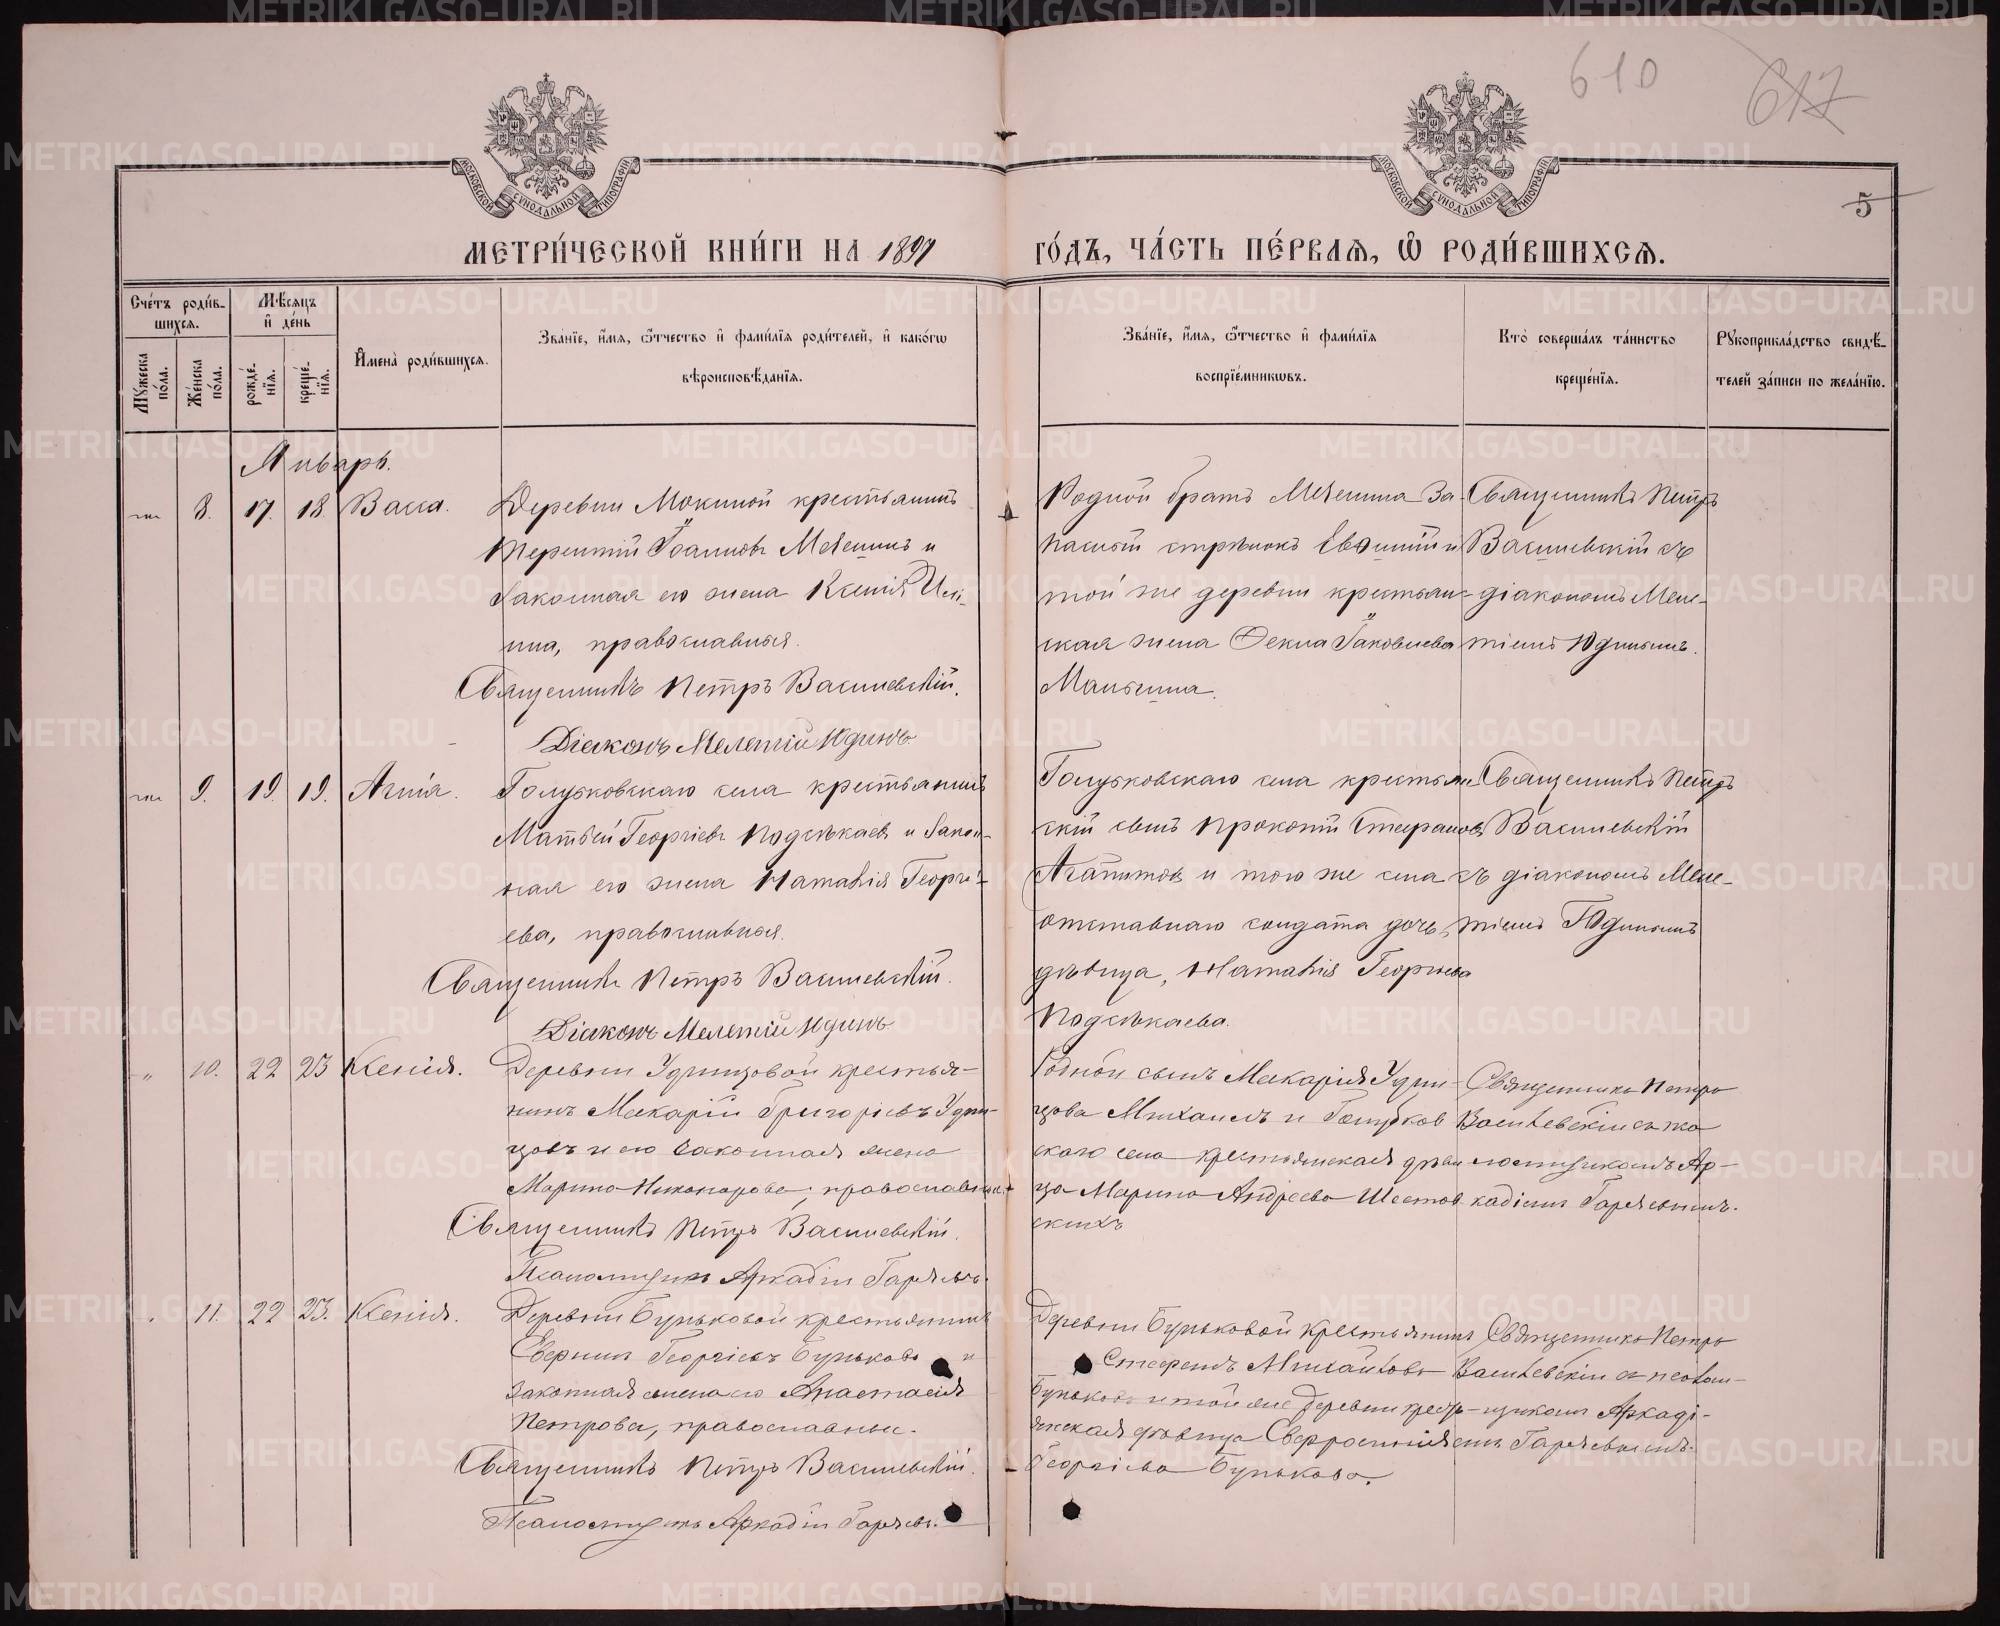 610
617
5
МОСКОВСКОЙ СУНОДАЛЬНОЙ ТИПОГРАФІИ
МОСКОВСКОЙ СУНОДАЛЬНОЙ ТИПОГРАФІИ
МЕТРИ́ЧЕСКОЙ КНИ́ГИ НА 1897
ГО́ДЪ, ЧА́СТЬ ПЕ́РВАЯ, Ѡ РОДИ́ВШИХСЯ.
Сче́тъ роди́в-
шихся.
Мѣ́сяцъ
и де́нь
Му́жеска по́ла.
Же́нска по́ла.
рожде́-
нїя.
креще́-
нїя.
Имена̀ роди́вшихся.
Зва́нїе, и́мя, ѻ́тчество и фами́лїя роди́телей, и како́гѡ
вѣроисповѣ́данїя.
Зва́нїе, и́мя, ѻ́тчество и фами́лїя
воспрїе́мниковъ.
Кто̀ соверша́лъ та́инство
креще́нїя.
Рукоприкла́дство свидѣ́-
телей за́писи по жела́нїю.
Январь.
8. 17. 18. Васса.
Деревни Мокиной крестьянинъ
Терентій Іоанновъ и
законная его жена Ксенія
православныя.
Священникъ Петръ Василевскій.
Діаконъ Мелетій Юдинъ.
Родной братъ За-
пасной стрѣлокъ Евѳимій и
той же деревни крестьян-
ская жена Ѳекла Іаковлева
Священникъ Петръ
Василевскій съ
діакономъ Меле-
тіемъ Юдинымъ.
9. 19. 19. Агнія.
Голубковскаго села крестьянинъ
Матѳей Георгіевъ Подсѣкаевъ и закон-
ная его жена Наталія Георгі-
ева, православныя.
Священникъ Петръ Василевскій.
Діаконъ Мелетій Юдинъ
Голубковскаго села крестьян-
скій сынъ Прокопій Стефановъ
Агапитовъ и того же села
отставнаго солдата дочь,
дѣвица, Наталія Георгіева
Подсѣкаева.
Священникъ Петръ
Василевскій
съ діакономъ Меле-
тіемъ Юдинымъ
" 10. 22 23 Ксенія.
Деревни Удинцовой крестья-
нинъ Макарій Григоріевъ Удин-
цовъ и его законная жена
Марина Никонорова, православные.
Священникъ Петръ Василевскій.
Псаломщикъ Аркадій Гаряевъ.
Родной сынъ Макарія Удин-
цова Михаилъ и Голубков
скаго села крестьянская дѣви
ца Марина Андреева Шестов
скихъ
Священникъ Петръ
Василевскій съ пса
ломщикомъ Ар-
кадіемъ Гаряевымъ.
11. 22 23. Ксенія.
Деревни Буньковой крестьянинъ
Георгіевъ Буньковъ и
законная жена его Анастасія
Петрова, православные.
Священникъ Петръ Василевскій.
Псаломщикъ Аркадій Гаряевъ.
Деревни Буньковой крестьянинъ
Стефанъ Михайловъ
Буньковъ и той же деревни крест-
янская дѣвица
Георгіева Бунькова.
Священникъ Петръ
Василевскій съ псалом-
щикомъ Аркаді-
емъ Гаряевымъ.